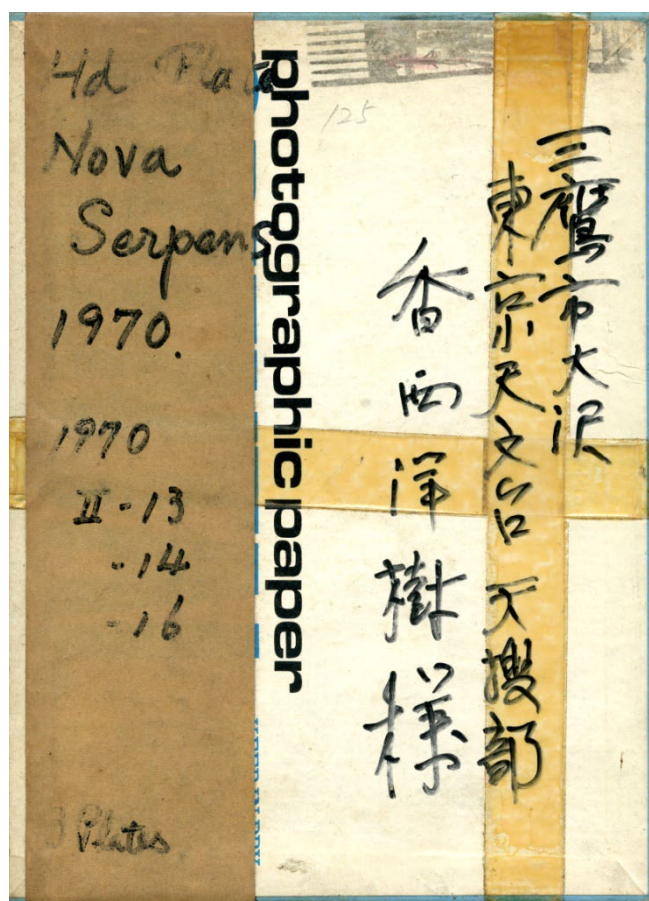 Nova
Serpens
1970.
1970
II-13
-14
-16
3 Plates
photographic paper
125
三鷹市大沢
東京天文台 天捜部
香西洋樹様